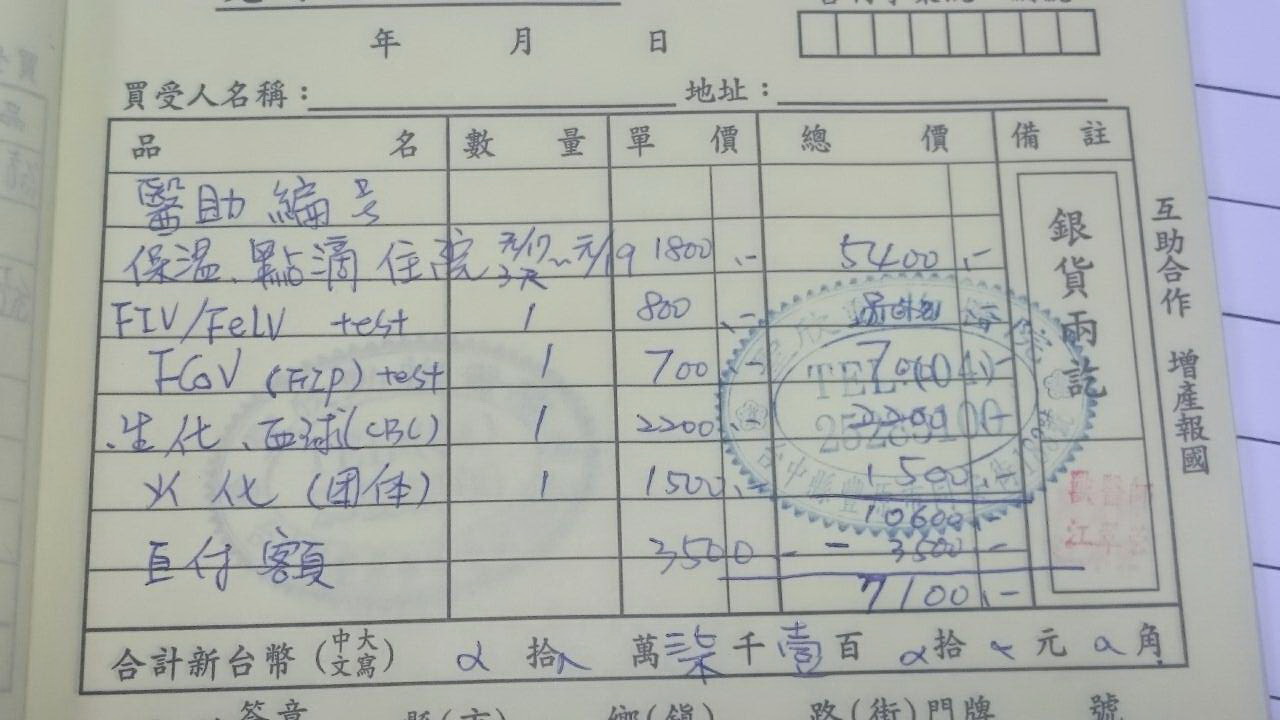 年 月 日
買受人名稱： 地址：
品 名 數 量 單 價 總 價 備 註
醫助編号
保溫、點滴 住院 元/17~元/19 3天 1800.- 5400.-
FIV/FeLV test 1 800.-
FCoV (FIP) test 1 700.- 700.-
生化、血球(CBC) 1 2200.- 2200
火化 (团体) 1 1500.- 1500.-
10600.-
自付額 3500 - - 3500 -
7100.-
銀貨兩訖
互助合作 增產報國
TEL (04)
合計新台幣(中文大寫) 拾 萬 柒 千 壹 百 拾 元 角
簽章 縣(市) 鄉(鎮) 路(街)門牌 號